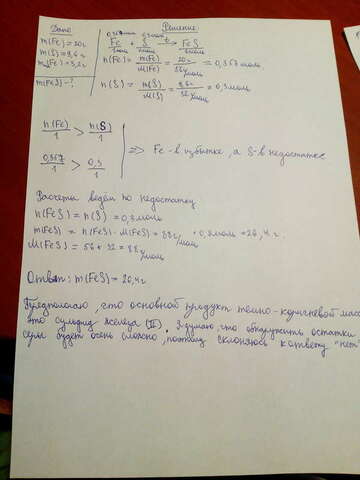 Дано
m(Fe) = 20г
m(S) = 9,6г
m(Fe) = 3,2г
m(FeS) - ?
Решение:
0,357моль 0,3моль
Fe + S → FeS
1моль 1моль 1моль
n(Fe) = m(Fe)/M(Fe) = 20г/56г/моль = 0,357моль
n(S) = m(S)/M(S) = 9,6г/32г/моль = 0,3моль
n(Fe)/1 > n(S)/1
0,357/1 > 0,3/1
=> Fe - в избытке, а S - в недостатке
Расчеты ведём по недостатку
n(FeS) = n(S) = 0,3моль
m(FeS) = n(FeS)·M(FeS) = 88г/моль · 0,3моль = 26,4г.
M(FeS) = 56 + 32 = 88г/моль
Ответ: m(FeS) = 26,4г
Предполагаю, что основной продукт темно-коричневой массы
это сульфид железа (II). Я думаю, что обнаружить остатки
серы будет очень сложно, поэтому склоняюсь к ответу "нет"